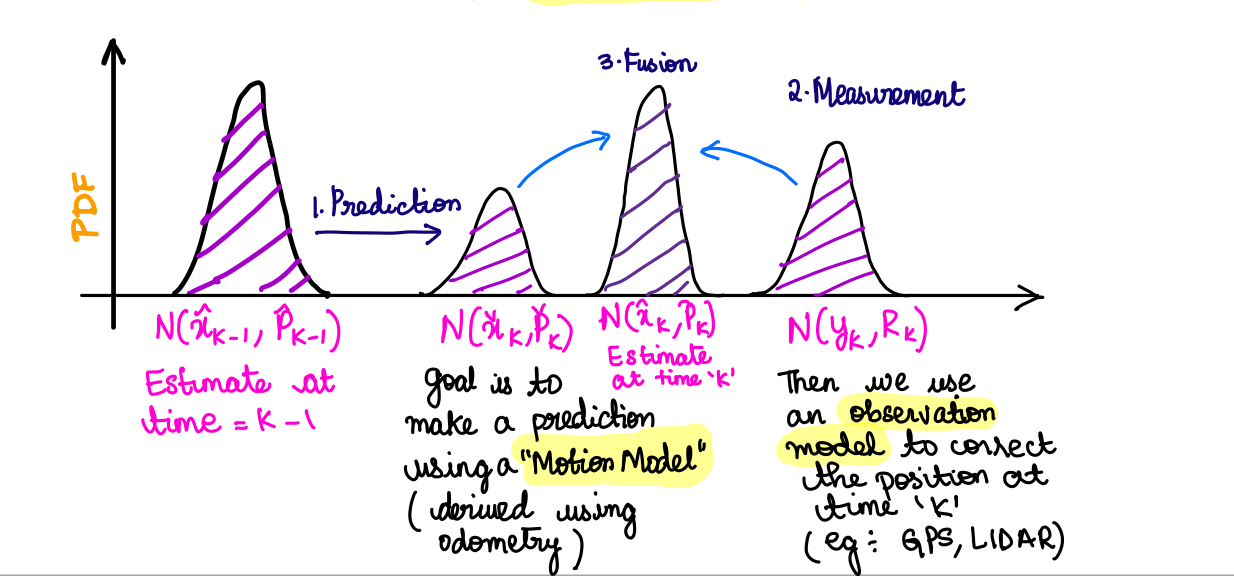 3. Fusion
2. Measurement
PDF
1. Prediction
N(x̂K-1, P̂K-1)
Estimate at
time = K-1
N(x̌K, P̌K)
goal is to
make a prediction
using a "Motion Model"
(derived using
odometry)
N(x̂K, P̂K)
Estimate
at time 'K'
N(yK, RK)
Then we use
an observation
model to correct
the position at
time 'K'
(eg: GPS, LIDAR)